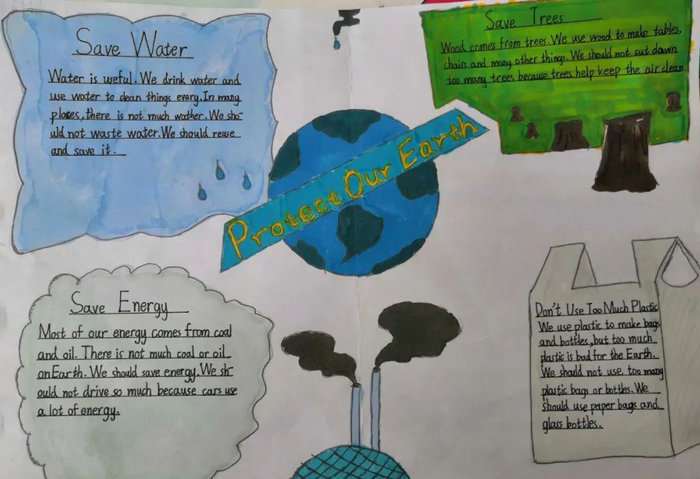 Save Water
Water is useful. We drink water and
use water to clean things every. In many
places, there is not much wather. We sho-
uld not waste water. We should reuse
and save it.
Save Trees
Wood comes from trees. We use wood to make tables,
chair and many other things. We should not cut down
too many trees, because trees help keep the air clean.
Protect Our Earth
Save Energy
Most of our energy comes from coal
and oil. There is not much coal or oil
on Earth. We should save energy. We sh-
ould not drive so much because cars use
a lot of energy.
Don't Use Too Much Plastic
We use plastic to make bags
and bottles, but too much
plastic is bad for the Earth.
We should not use too many
plastic bags or bottles. We
should use paper bags and
glass bottles.